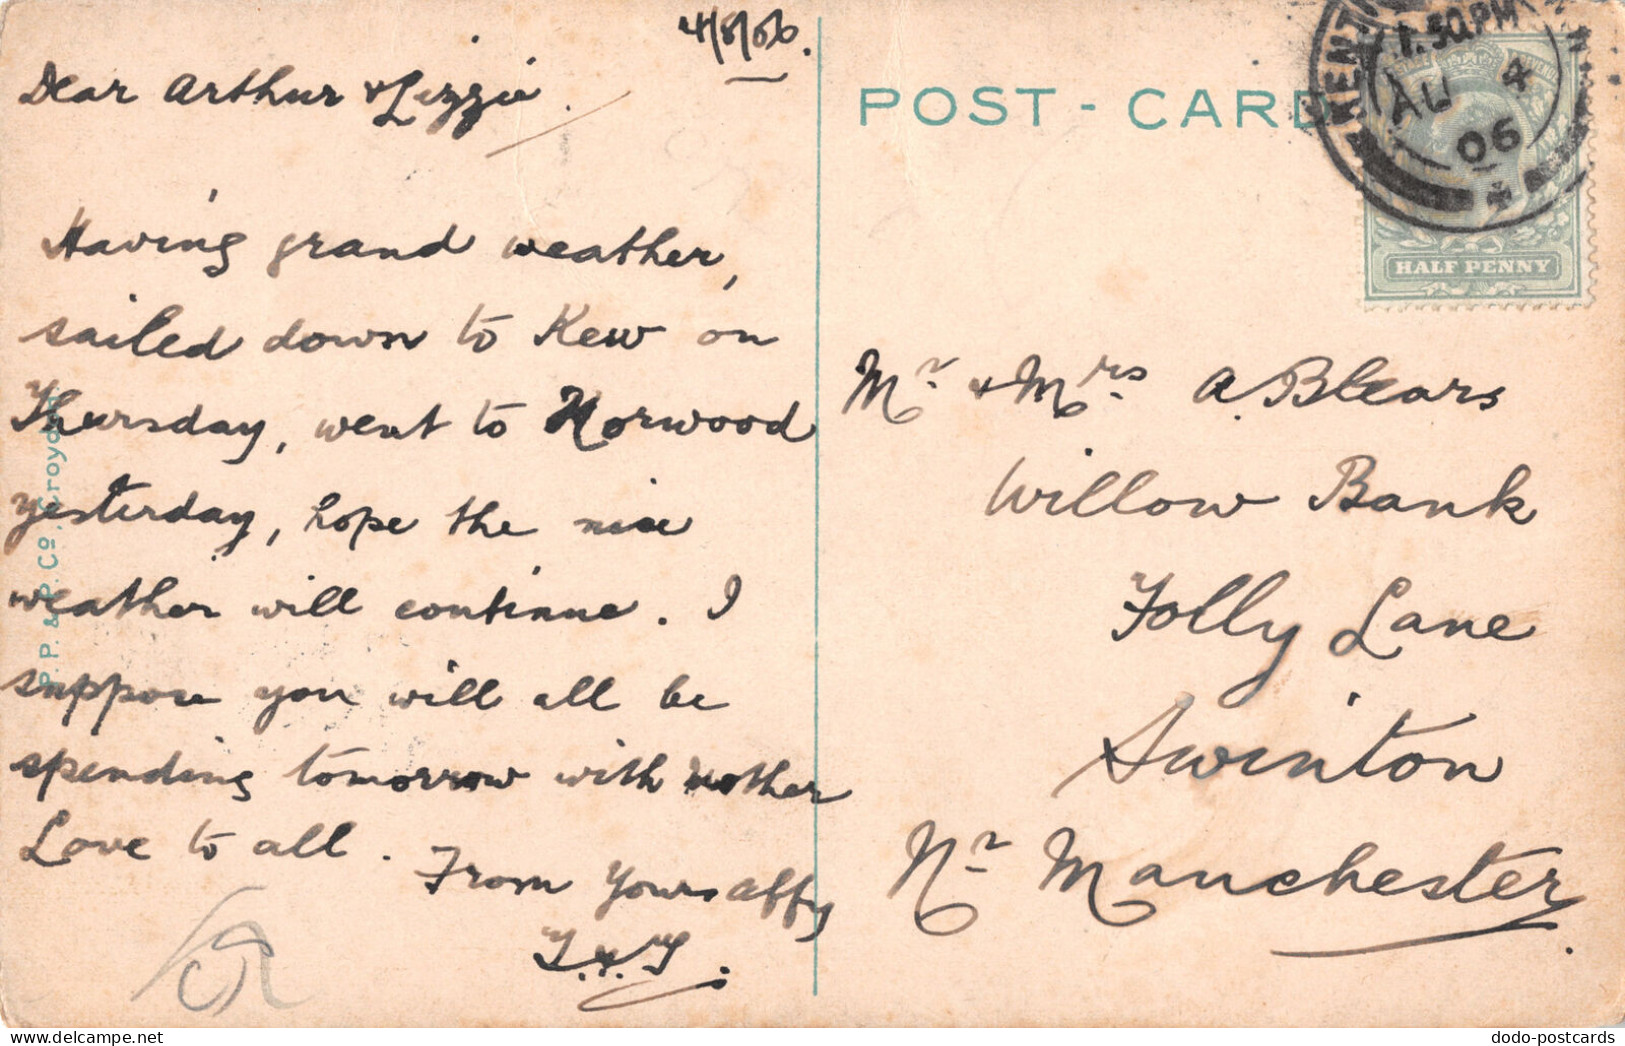 4/8/06.
Dear Arthur & Lizzie.
Having grand weather,
sailed down to Kew on
Thursday, went to Norwood
yesterday, hope the nice
weather will continue. I
suppose you will all be
spending tomorrow with mother
Love to all.
From Yours affy
P.P. & P. Co. Croydon
POST - CARD
1.30 PM
AU 4
06
HALF PENNY
Mr & Mrs A. Blears
Willow Bank
Folly Lane
Swinton
Nr Manchester.
dodo-postcards